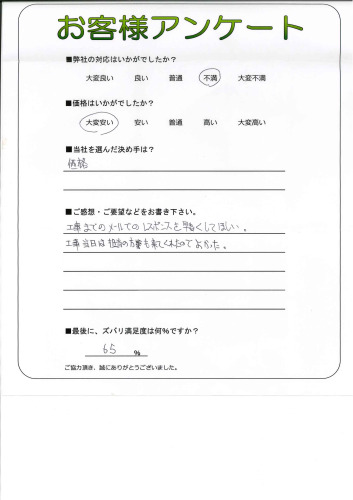 お客様アンケート
■弊社の対応はいかがでしたか？
大変良い 良い 普通 不満 大変不満
■価格はいかがでしたか？
大変安い 安い 普通 高い 大変高い
■当社を選んだ決め手は？
価格
■ご感想・ご要望などをお書き下さい。
工事までのメールでのレスポンスを早くしてほしい。
工事当日は担当の方も来てくれたのでよかった。
■最後に、ズバリ満足度は何%ですか？
65 %
ご協力頂き、誠にありがとうございました。